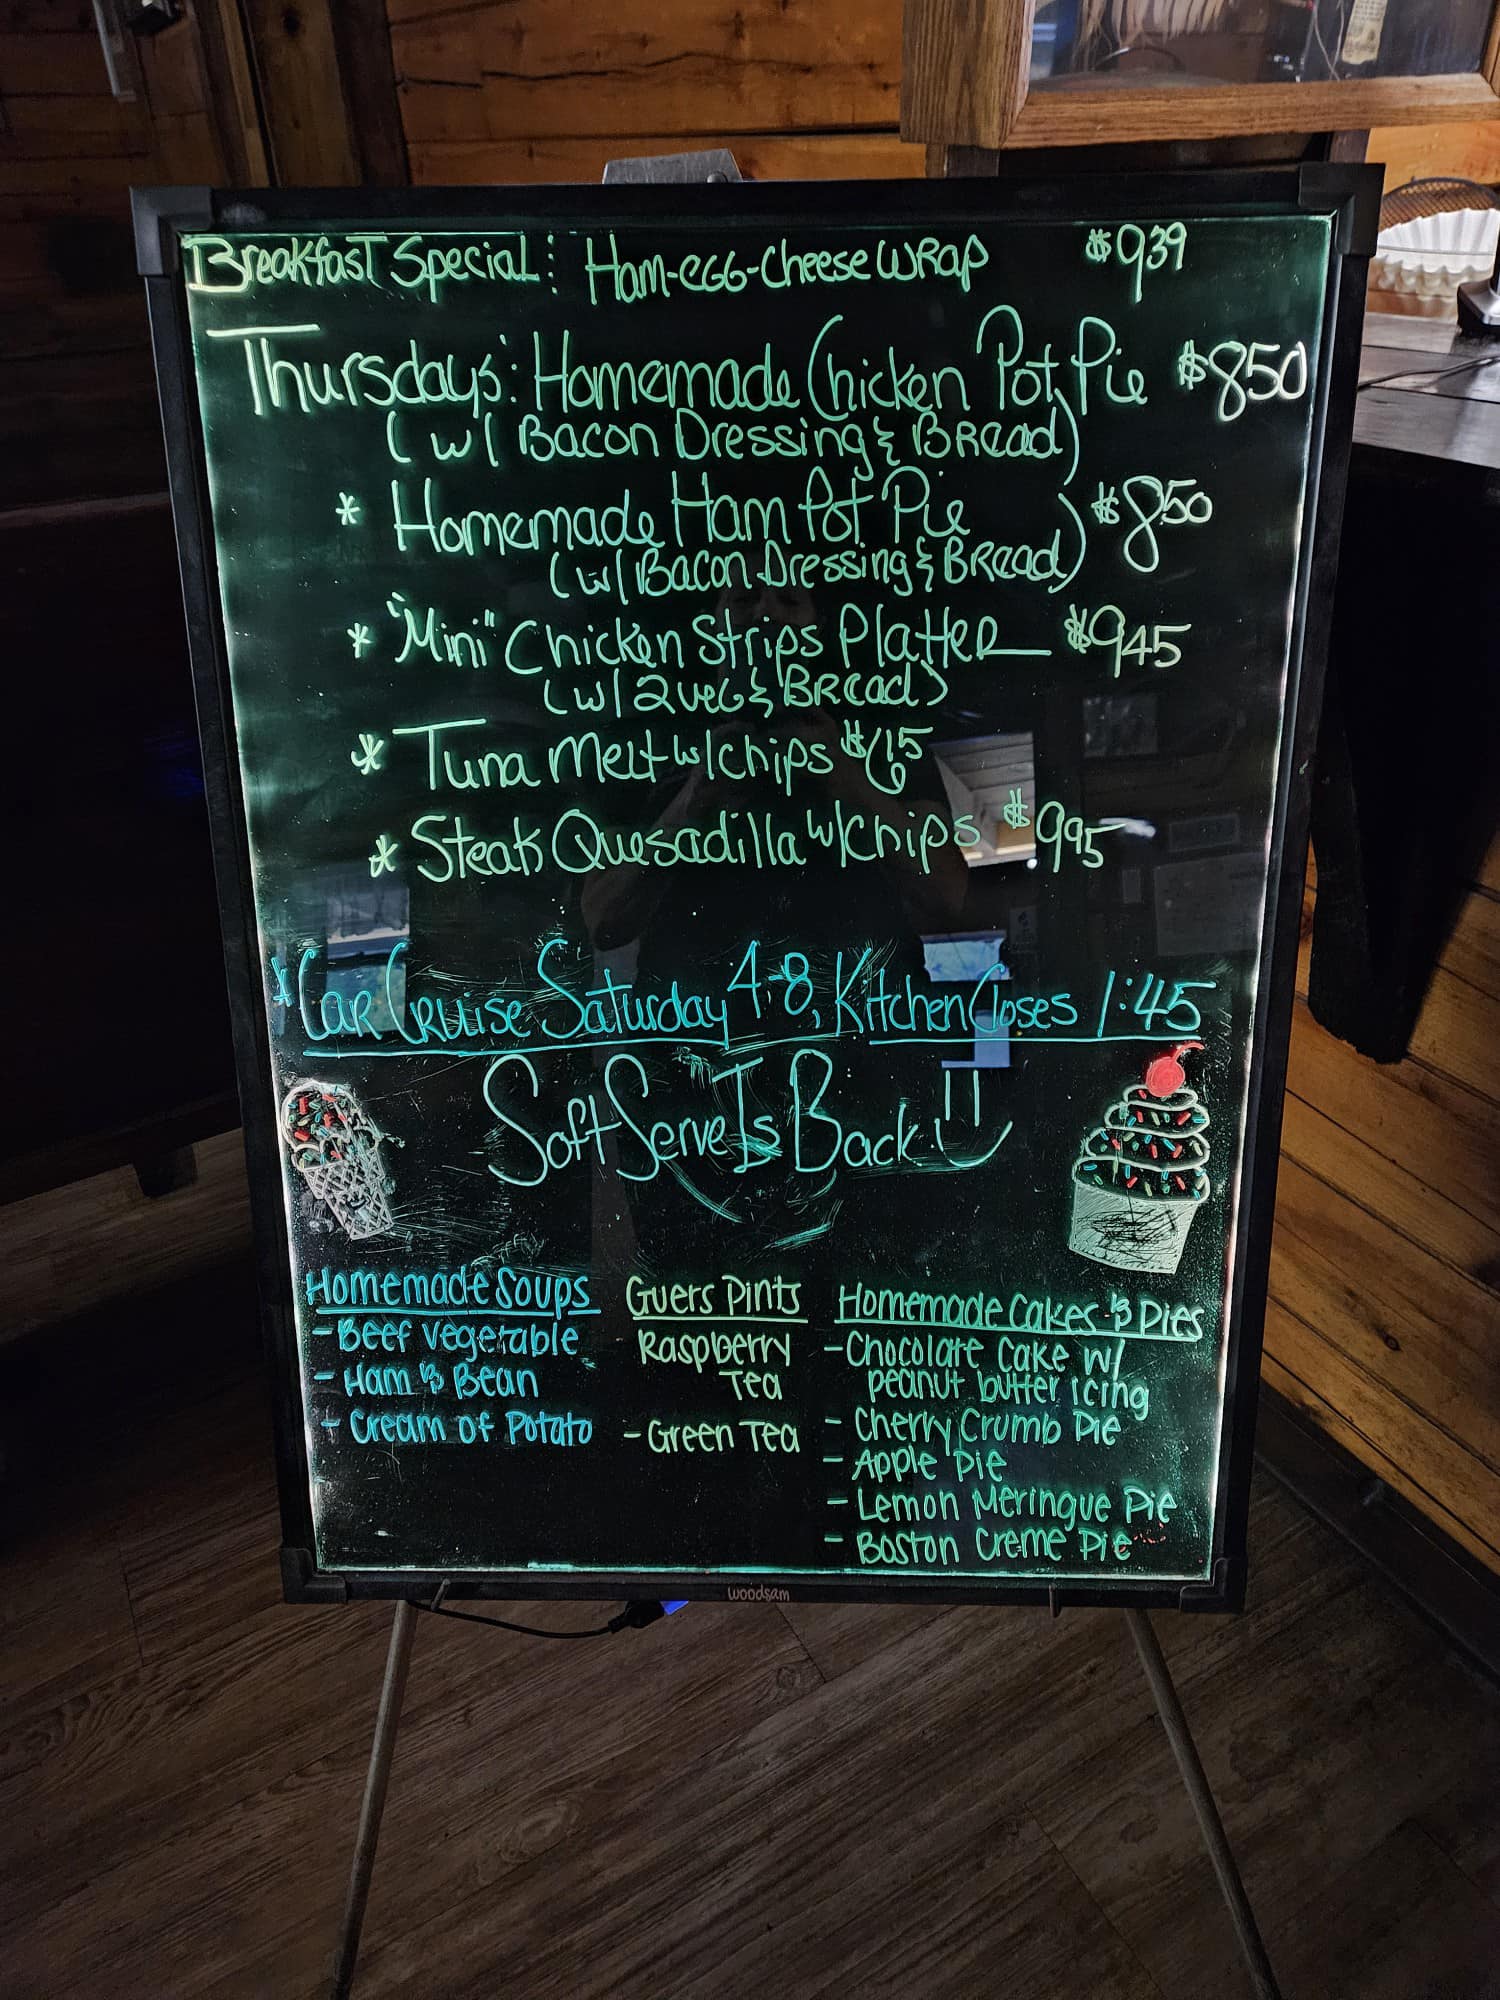 Breakfast Special: Ham-egg-cheese wrap $9.39
Thursdays': Homemade Chicken Pot Pie $8.50
(w/ Bacon Dressing & Bread)
* Homemade Ham Pot Pie $8.50
(w/ Bacon Dressing & Bread)
* "Mini" Chicken Strips Platter $9.45
(w/ 2 veg & Bread)
* Tuna Melt w/chips $6.15
* Steak Quesadilla w/chips $9.95
* Car Cruise Saturday 4-8, Kitchen Closes 1:45
Soft Serve Is Back
Homemade Soups
- Beef Vegetable
- Ham & Bean
- Cream of Potato
Guers Pints
Raspberry
Tea
- Green Tea
Homemade Cakes & Pies
- Chocolate Cake w/
peanut butter icing
- Cherry Crumb Pie
- Apple Pie
- Lemon Meringue Pie
- Boston Creme Pie
woodsam